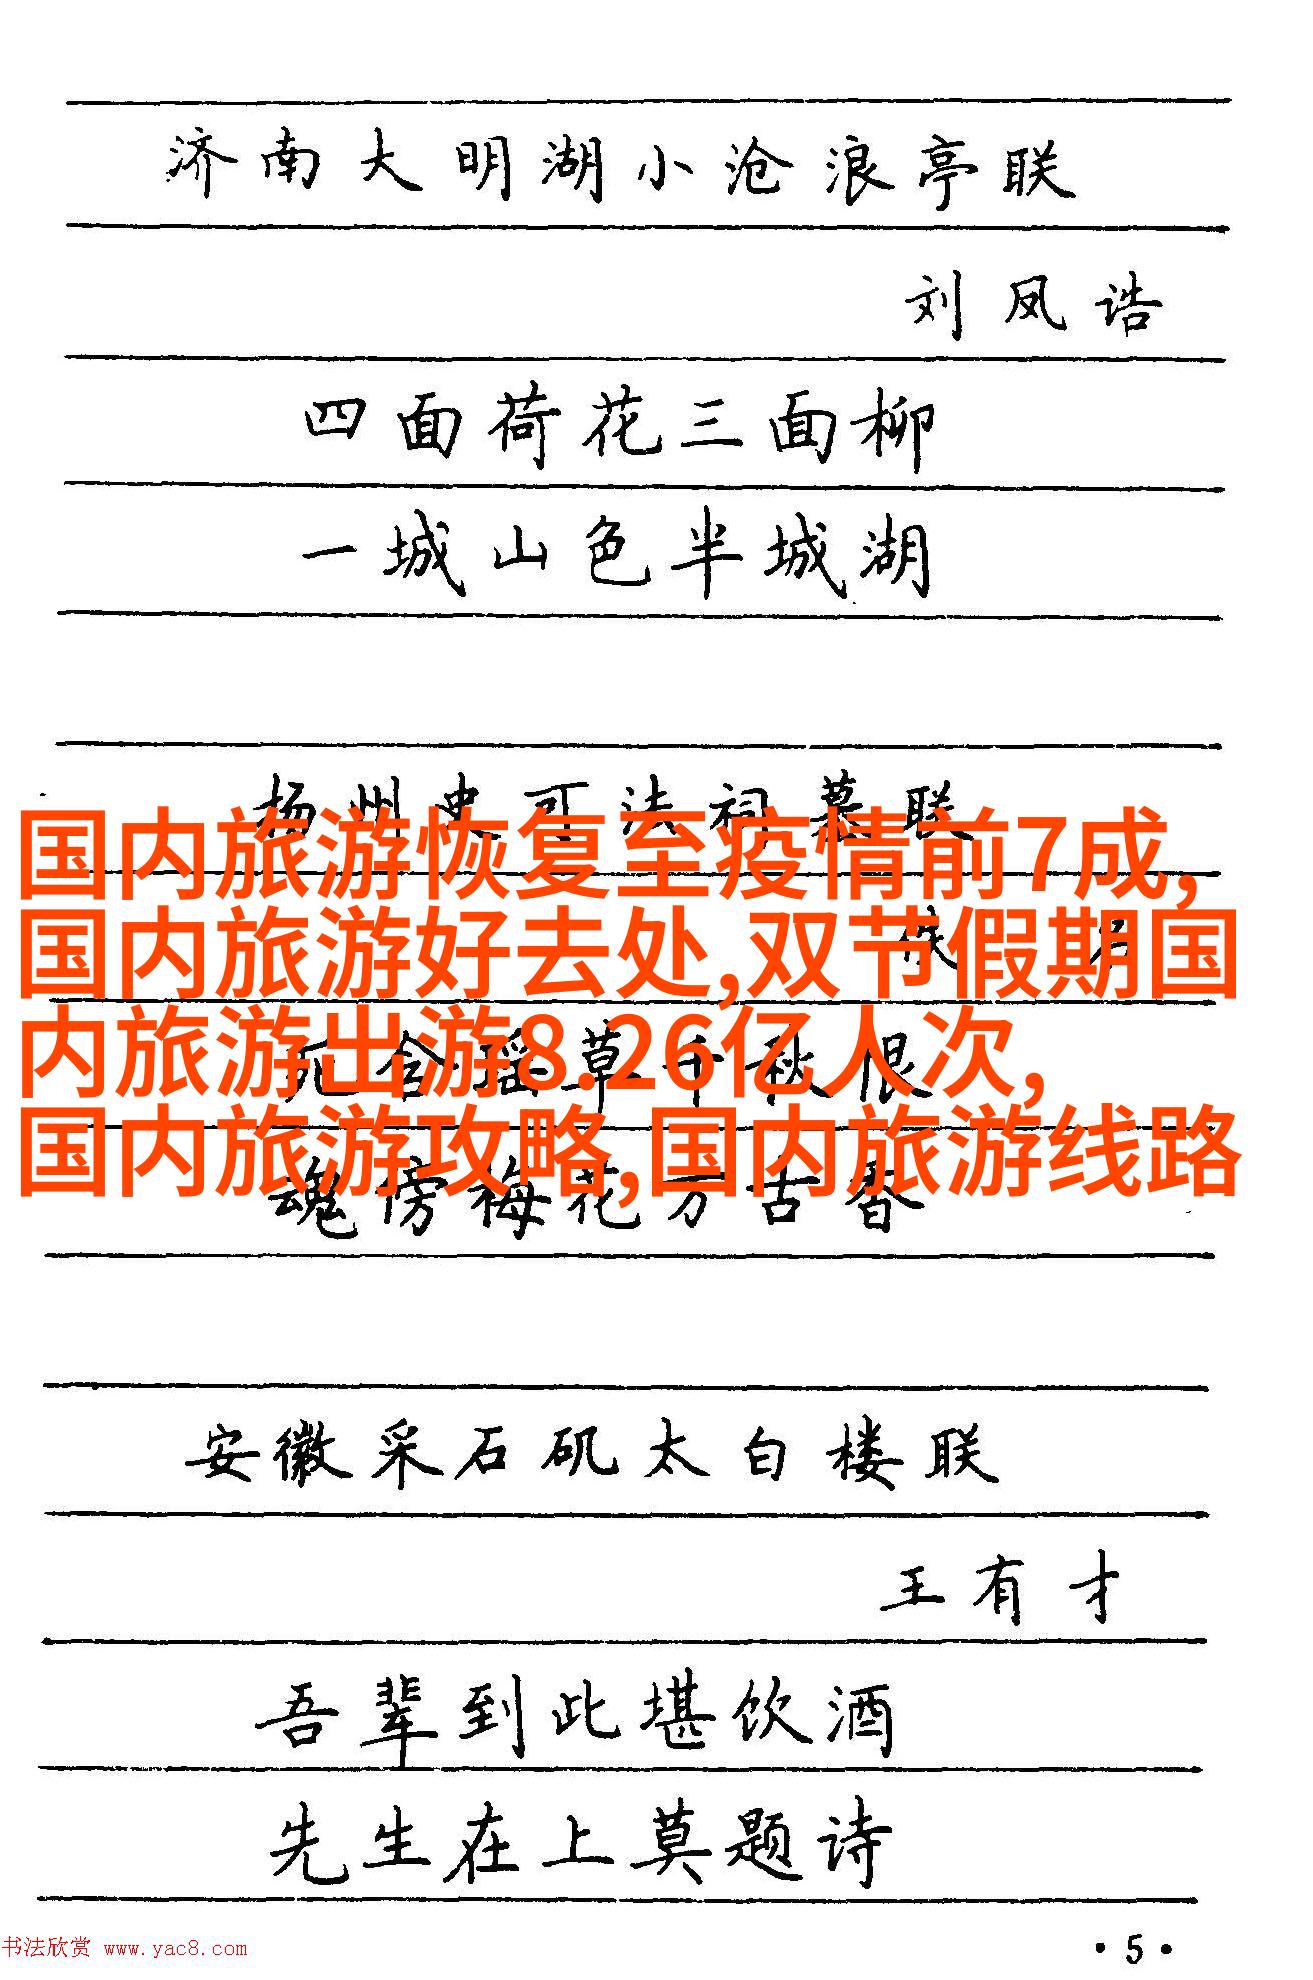 济南大明湖小沧浪亭联
刘凤诰
四面荷花三面柳
一城山色半城湖
扬州史可法祠墓联
国内旅游恢复至疫情前7成,
国内旅游好去处,双节假期国
内旅游出游8.26亿人次,
国内旅游攻略,国内旅游线路
千秋恨
魂傍梅花万古香
安徽采石矶太白楼联
王有才
吾辈到此堪饮酒
先生在上莫题诗
书法欣赏 www.yac8.com
·5·